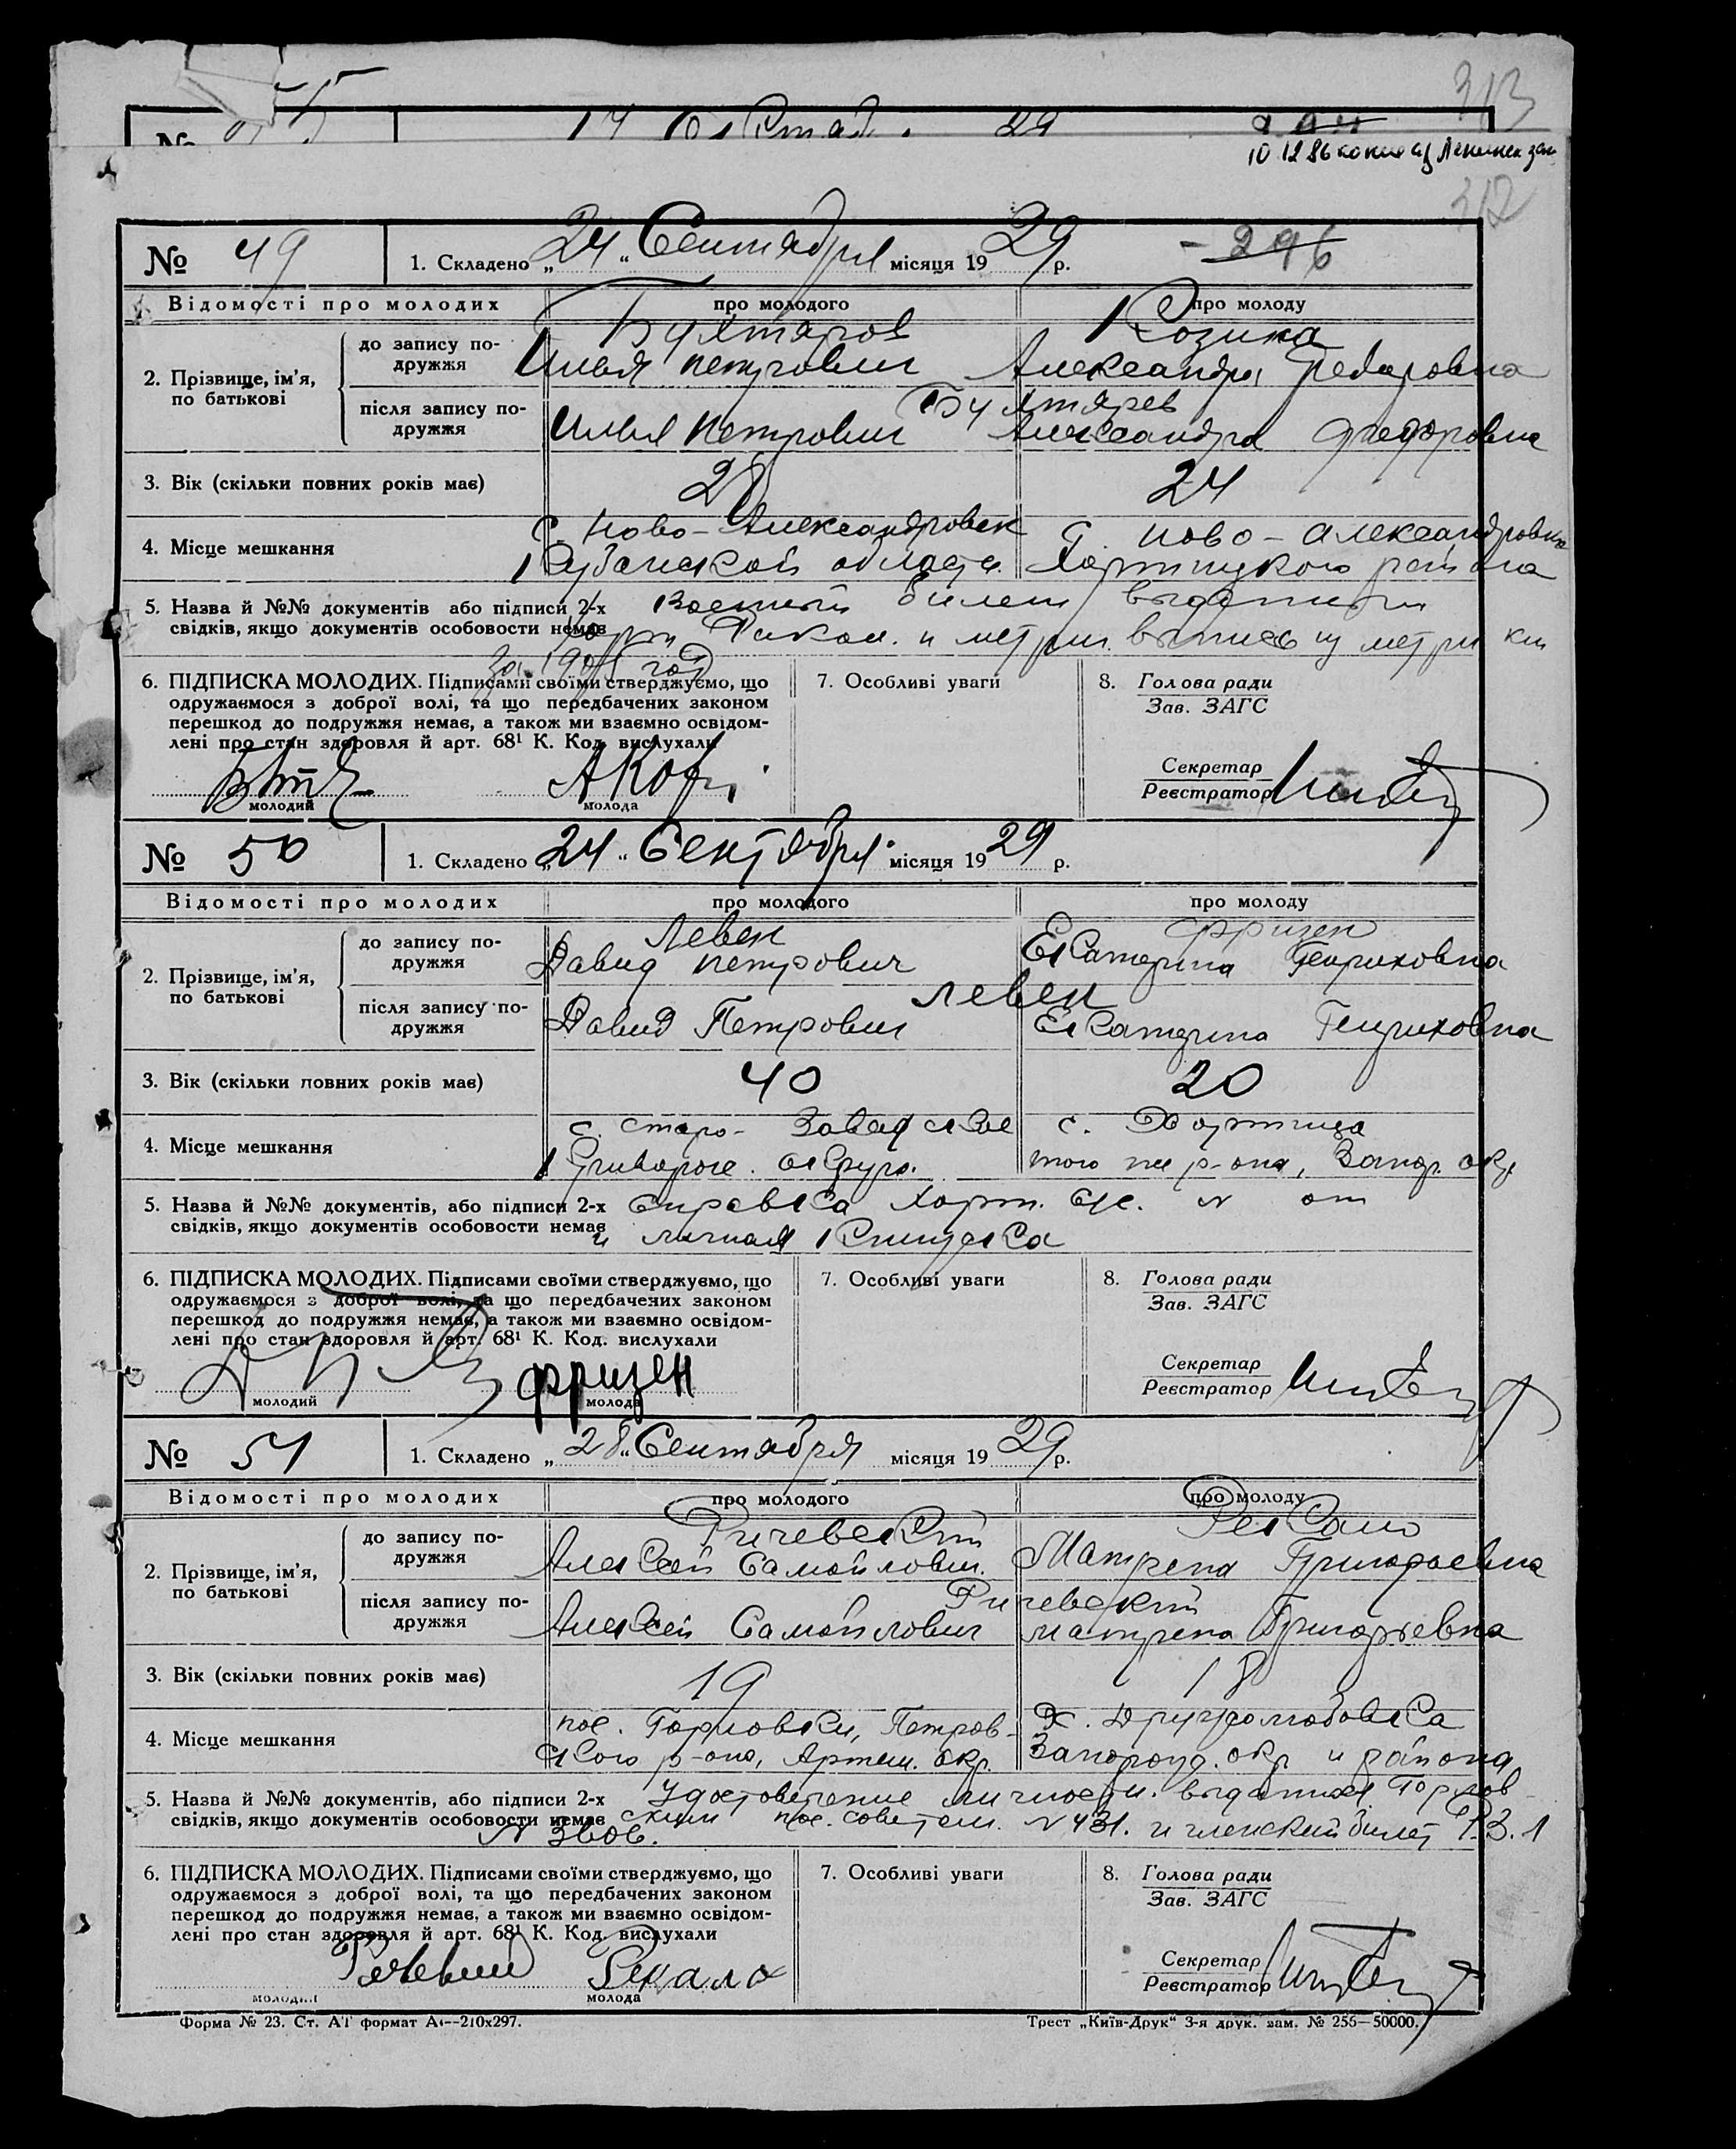 313
10.12.86 копия
312
№ 49
1. Складено „24“ Сентября місяця 1929 р.
- 296
Відомості про молодих
про молодого
про молоду
2. Прізвище, ім’я, по батькові
до запису подружжя
Илья Петрович
Александра Федоровна
після запису подружжя
Илья Петрович
Александра Федоровна
3. Вік (скільки повних років має)
28
24
4. Місце мешкання
с. Ново-Александровск
Кубанской области
с. Ново-Александровка
Хортицкого района
5. Назва й №№ документів або підписи 2-х
свідків, якщо документів особовости немає
Военный билет выданный
и метрич. выпись из метрики
6. ПІДПИСКА МОЛОДИХ. Підписами своїми стверджуємо, що
одружаємося з доброї волі, та що передбачених законом
перешкод до подружжя немає, а також ми взаємно освідом-
лені про стан здоровля й арт. 68¹ К. Код. вислухали
молодий
молода
7. Особливі уваги
8. Голова ради
Зав. ЗАГС
Секретар
Реєстратор
№ 50
1. Складено „24“ Сентября місяця 1929 р.
Відомості про молодих
про молодого
про молоду
2. Прізвище, ім’я, по батькові
до запису подружжя
Левен
Давид Петрович
Фризен
Екатерина Генриховна
після запису подружжя
Левен
Давид Петрович
Екатерина Генриховна
3. Вік (скільки повних років має)
40
20
4. Місце мешкання
с. Старо-
Криворож. округа.
с. Хортица
того же р-она, Запор. окр
5. Назва й №№ документів, або підписи 2-х
свідків, якщо документів особовости немає
Справка Хорт. с/с. № от
и личная книжка
6. ПІДПИСКА МОЛОДИХ. Підписами своїми стверджуємо, що
одружаємося з доброї волі, та що передбачених законом
перешкод до подружжя немає, а також ми взаємно освідом-
лені про стан здоровля й арт. 68¹ К. Код. вислухали
молодий
Фризен
молода
7. Особливі уваги
8. Голова ради
Зав. ЗАГС
Секретар
Реєстратор
№ 51
1. Складено „28“ Сентября місяця 1929 р.
Відомості про молодих
про молодого
про молоду
2. Прізвище, ім’я, по батькові
до запису подружжя
Ричевский
Алексей Самойлович
Рекало
Матрена Григорьевна
після запису подружжя
Ричевский
Алексей Самойлович
Матрена Григорьевна
3. Вік (скільки повних років має)
19
18
4. Місце мешкання
пос. Горловки, Петров-
ского р-она, Артем. окр.
Х. Дружолюбовка
Запорожд. окр и района
5. Назва й №№ документів, або підписи 2-х
свідків, якщо документів особовости немає
Удостоверение личности. выданная Горлов-
ским пос. советом. № 431. и членский билет
№
6. ПІДПИСКА МОЛОДИХ. Підписами своїми стверджуємо, що
одружаємося з доброї волі, та що передбачених законом
перешкод до подружжя немає, а також ми взаємно освідом-
лені про стан здоровля й арт. 68¹ К. Код. вислухали
молодий
Рекало
молода
7. Особливі уваги
8. Голова ради
Зав. ЗАГС
Секретар
Реєстратор
Форма № 23. Ст. АТ формат А4—210х297.
Трест „Київ-Друк“ 3-я друк. зам. № 256—50000.